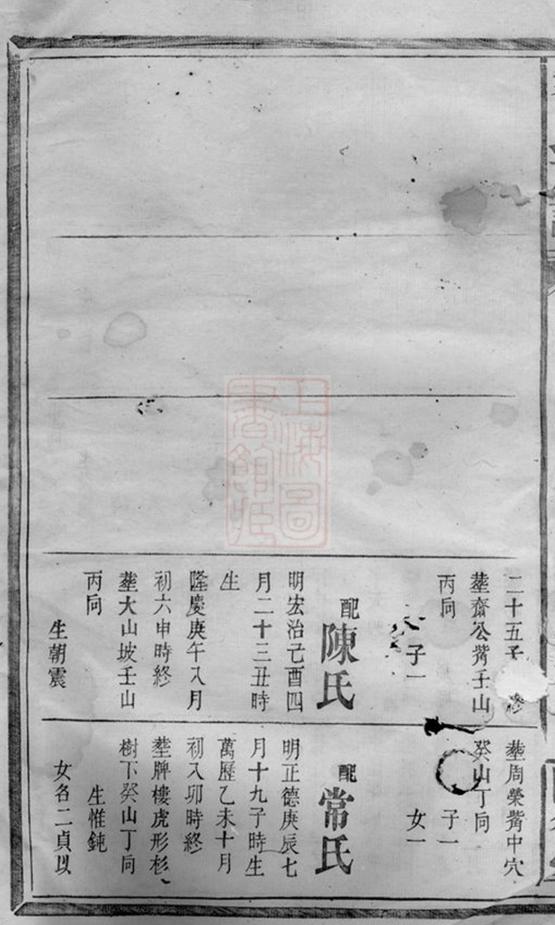 二十五子
塟齋公觜壬山
丙向
子一
配
陳氏
明宏治己酉四
月二十三丑時
生
隆慶庚午八月
初六申時終
塟大山坡壬山
丙向
生朝震
塟周榮觜中穴
癸山丁向
子一
女一
配
常氏
明正德庚辰七
月十九子時生
萬歷乙未十月
初八卯時終
塟牌樓虎形杉
樹下癸山丁向
生惟鈍
女名二貞以
上海圖書館藏